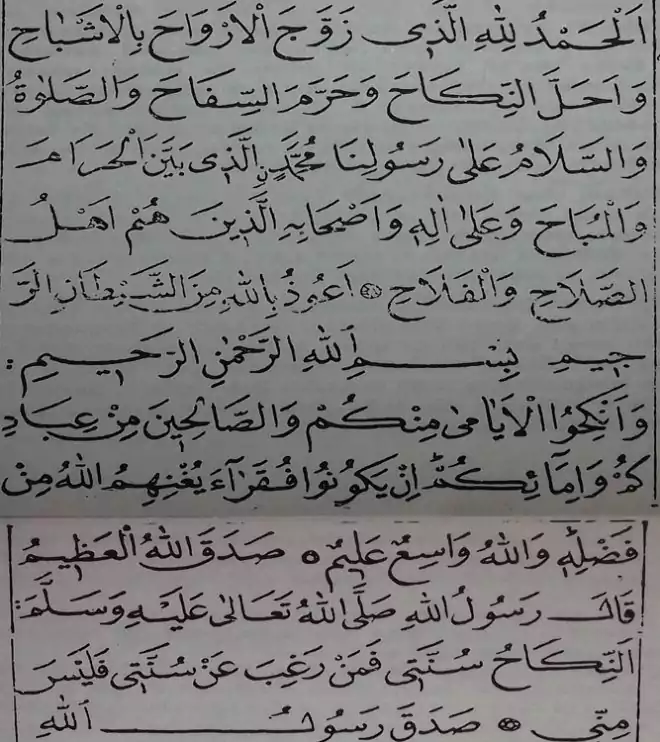 اَلْحَمْدُ لِلّٰهِ الَّذِى زَوَّجَ الْاَرْوَاحَ بِالْاَشْبَاحِ
وَاَحَلَّ النِّكَاحَ وَحَرَّمَ السِّفَاحَ وَالصَّلٰوةُ
وَالسَّلَامُ عَلٰى رَسُولِنَا مُحَمَّدٍنِ الَّذِى بَيَّنَ الْحَرَامَ
وَالْمُبَاحَ وَعَلٰى اٰلِهِ وَاَصْحَابِهِ الَّذِينَ هُمْ اَهْلُ
الصَّلَاحِ وَالْفَلَاحِ ۞ اَعُوذُ بِاللّٰهِ مِنَ الشَّيْطَانِ الرَّ
جِيمِ بِسْمِ اللّٰهِ الرَّحْمٰنِ الرَّحِيمِ :
وَاَنْكِحُوا الْاَيَامٰى مِنْكُمْ وَالصَّالِحِينَ مِنْ عِبَادِ
كُمْ وَاِمَائِكُمْ اِنْ يَكُونُوا فُقَرَآءَ يُغْنِهِمُ اللّٰهُ مِنْ
فَضْلِهٖ وَاللّٰهُ وَاسِعٌ عَلِيمٌ ۞ صَدَقَ اللّٰهُ الْعَظِيمُ
قَالَ رَسُولُ اللّٰهِ صَلَّى اللّٰهُ تَعَالٰى عَلَيْهِ وَسَلَّمَ :
اَلنِّكَاحُ سُنَّتِى فَمَنْ رَغِبَ عَنْ سُنَّتِى فَلَيْسَ
مِنِّى ۞ صَدَقَ رَسُولُ اللّٰهِ